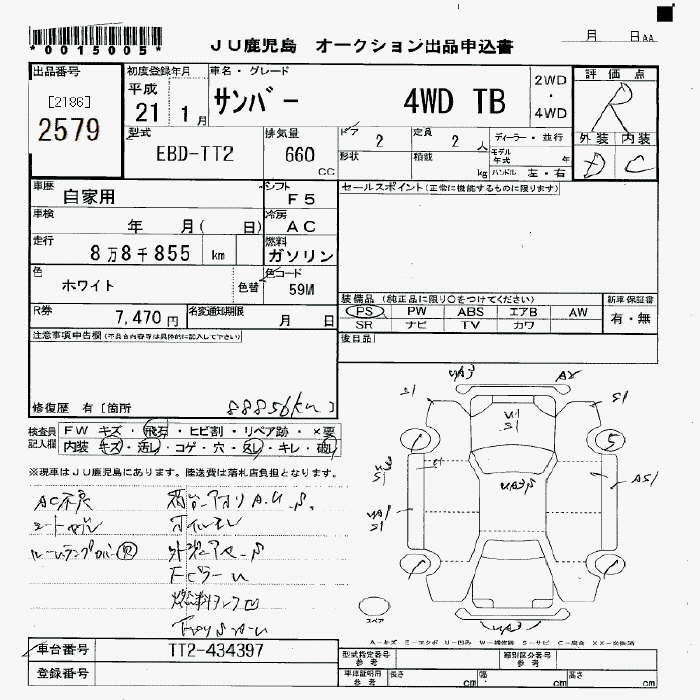 *0015005*
JU鹿児島 オークション出品申込書
月 日AA
出品番号
[2186]
2579
初度登録年月
平成
21 1月
車名・グレード
サンバー 4WD TB
2WD
・
4WD
評価点
R
外装 内装
D C
型式
EBD-TT2
排気量
660
CC
ドア
2
定員
2 人
ディーラー・並行
形状
積載
kg
モデル
年式 年
ハンドル 左・右
車歴
自家用
シフト
F5
セールスポイント(正常に機能するものに限ります)
車検
年 月( 日)
冷房
AC
走行
8万8千855 km
燃料
ガソリン
色
ホワイト
色替
色コード
59M
装備品 (純正品に限り○をつけてください)
新車保証書
PS PW ABS エアB AW
有・無
SR ナビ TV カワ
R券
7,470円
名変通知期限
月 日
後日品
注意事項申告欄(不具合内容等は具体的に記入して下さい)
修復歴 有 [箇所 88856km ]
検査員
記入欄
FW キズ・飛石・ヒビ割・リペア跡・×要
内装 キズ・汚レ・コゲ・穴・スレ・キレ・破レ
※現車はJU鹿児島にあります。陸送費は落札店負担となります。
AC不良
荷台アオリA.U.S.
オイルモレ
ルームランプカバー欠
燃料タンク
UA3 A2
S1 S1
U1
S1
5
UA3S
A51
UA1
S1
UA3
スペア
車台番号
TT2-434397
登録番号
型式指定番号
参考
類別区分番号
参考
車庫証明用
参考
長さ cm
幅 cm
高さ cm